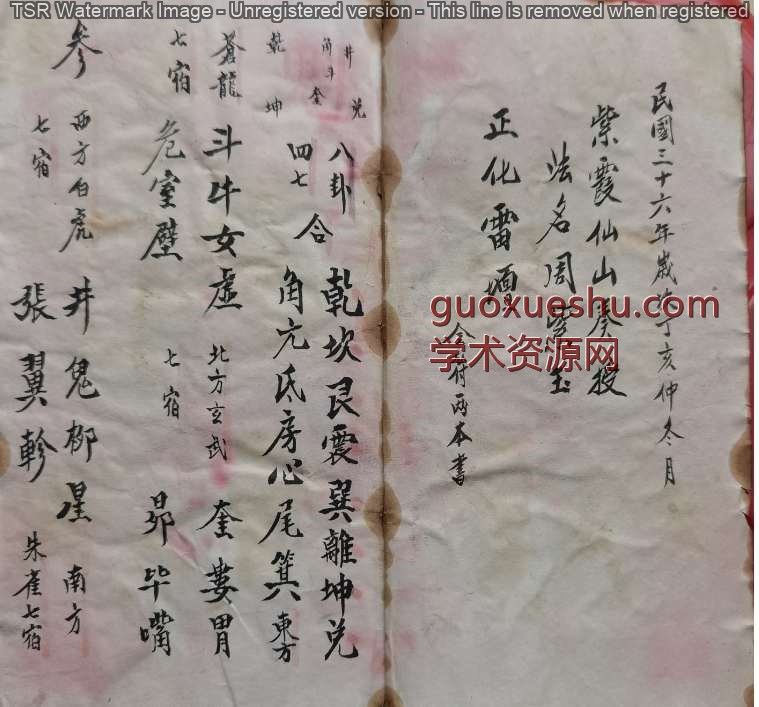 TSR Watermark Image - Unregistered version - This line is removed when registered
民國三十六年歲次丁亥仲冬月
紫霞仙山奏授
法名周
正化雷壇
全付兩本書
guoxueshu.com
学术资源网
井 兌
角 斗 奎
乾 坤
八卦
四七
合
乾坎艮震巽離坤兌
角亢氐房心尾箕 東方
蒼龍
七宿
斗牛女虛
危室壁
北方玄武
七宿
奎婁胃
昴毕嘴
參
西方白虎
七宿
井鬼柳星
張翼軫
南方
朱雀七宿